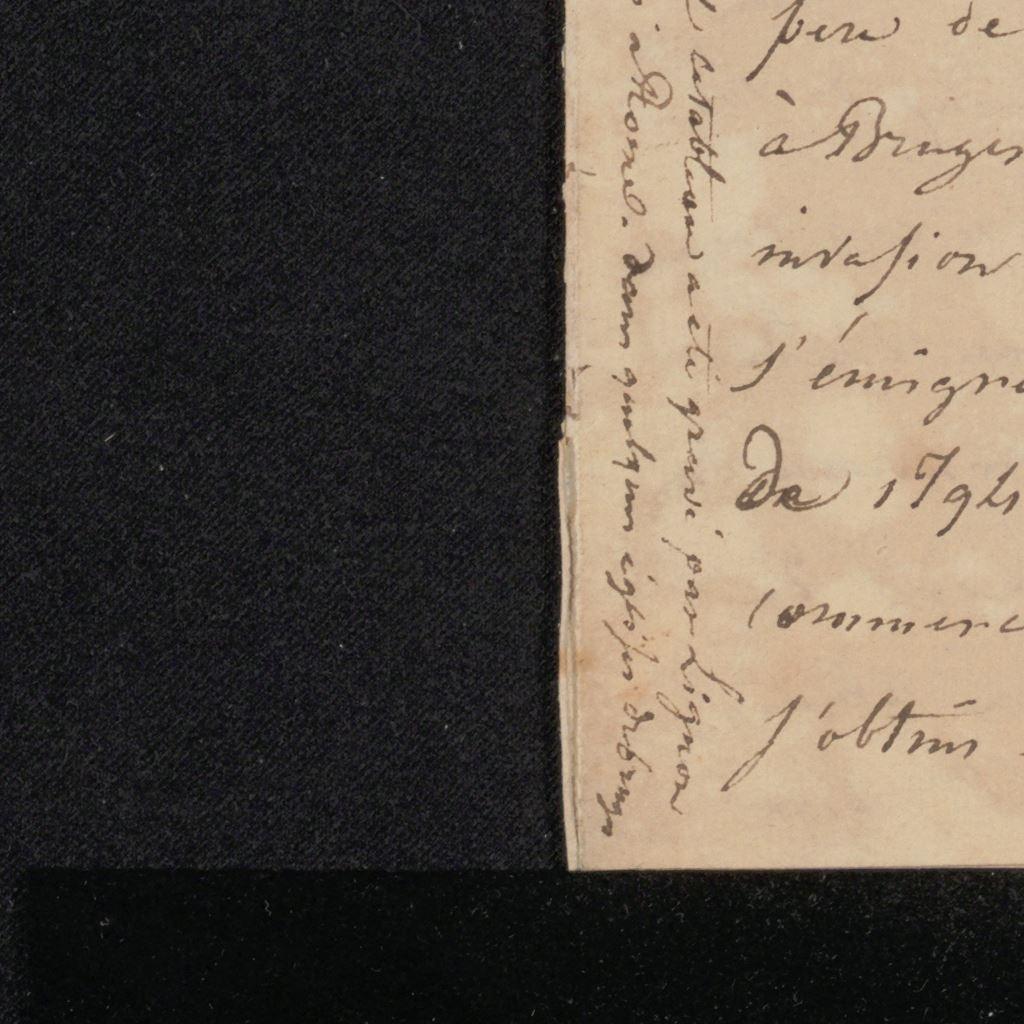 pere de
à Bruges
invasion
s'émigre
De 1794
commerc
s'obtins
cetableau a eté gravé par Lignon
à Rome. dans quelques eglises debruges